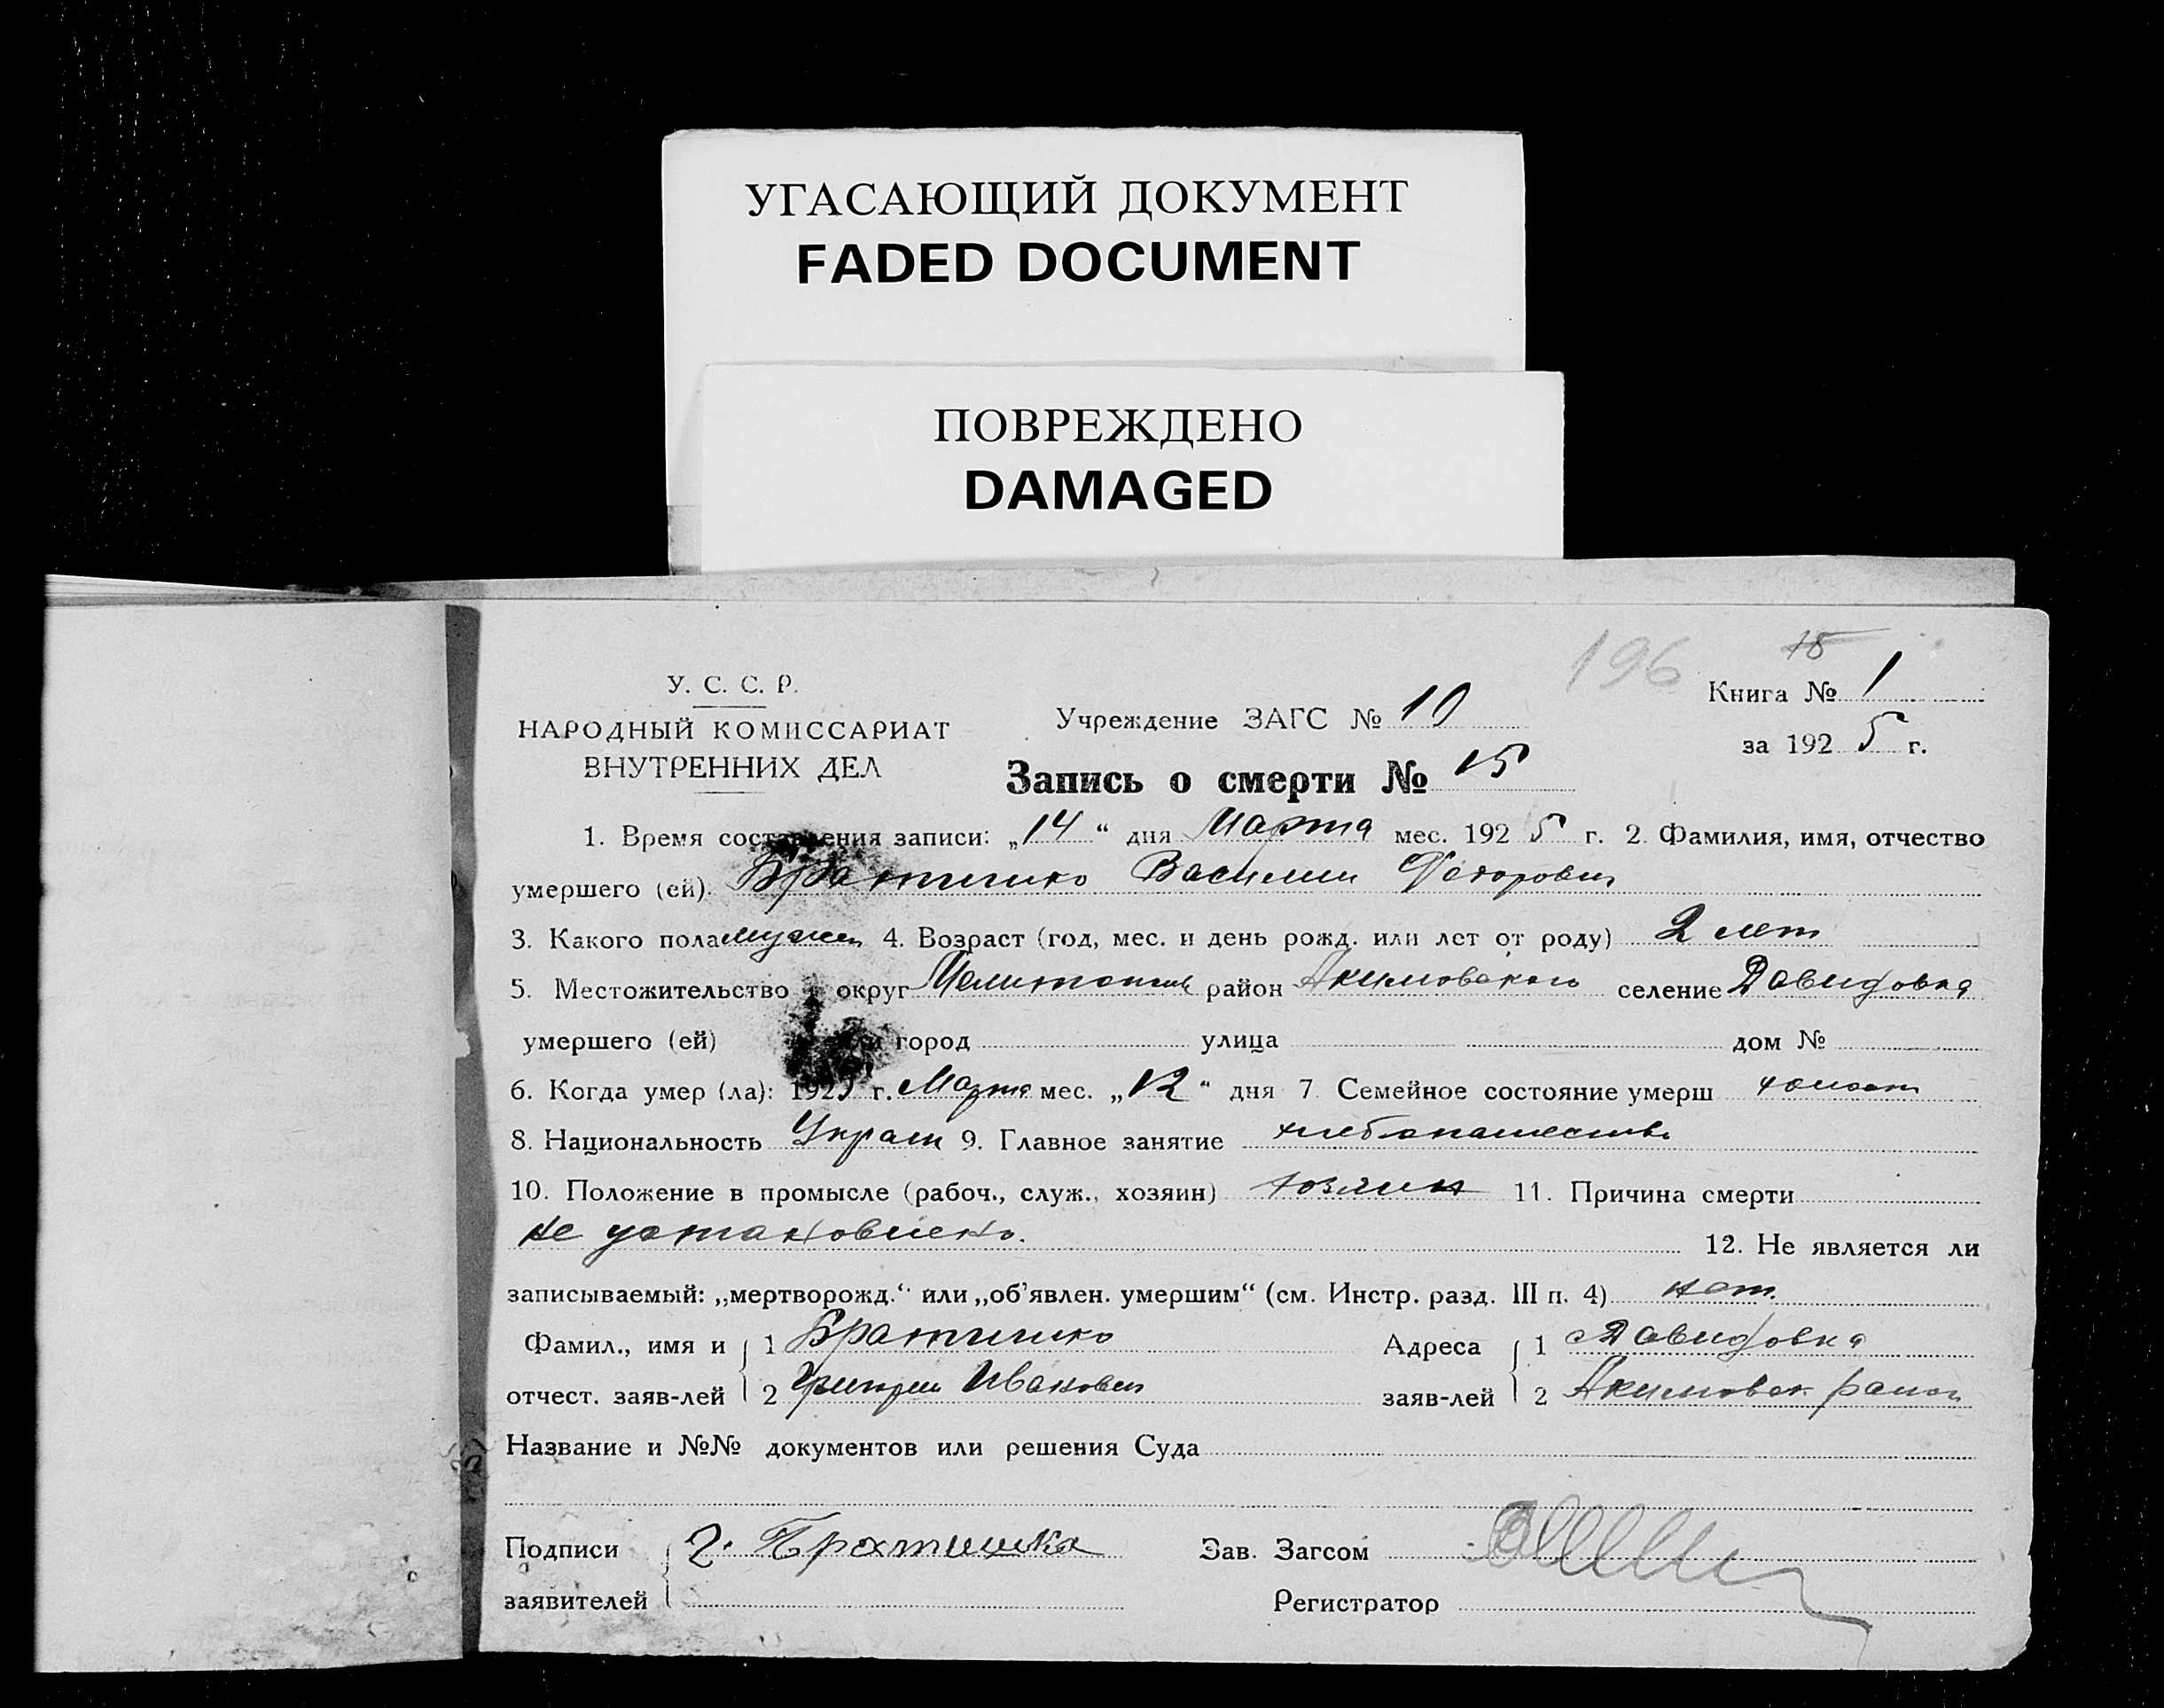 УГАСАЮЩИЙ ДОКУМЕНТ
FADED DOCUMENT
ПОВРЕЖДЕНО
DAMAGED
196 18
У. С. С. Р.
НАРОДНЫЙ КОМИССАРИАТ
ВНУТРЕННИХ ДЕЛ
Учреждение ЗАГС № 10
Книга № 1
за 1925 г.
Запись о смерти № 15
1. Время составления записи: „14“ дня Марта мес. 1925 г. 2. Фамилия, имя, отчество
умершего (ей). Братишко Василий Федорович
3. Какого пола мужск 4. Возраст (год, мес. и день рожд. или лет от роду) 2 лет
5. Местожительство округ Мелитопол район Акимовского селение Давидовка
умершего (ей) или город улица дом №
6. Когда умер (ла): 1925 г. Марта мес. „12“ дня 7. Семейное состояние умерш холост
8. Национальность Украин 9. Главное занятие хлебопашество
10. Положение в промысле (рабоч., служ., хозяин) хозяин 11. Причина смерти
не установлено.
12. Не является ли
записываемый: „мертворожд.“ или „об’явлен. умершим“ (см. Инстр. разд. III п. 4) нет.
Фамил., имя и 1 Братишко Адреса 1 Давидовка
отчест. заяв-лей 2 Григрий Иванович заяв-лей 2 Акимовск район
Название и №№ документов или решения Суда
Подписи Г. Братишка Зав. Загсом
заявителей Регистратор